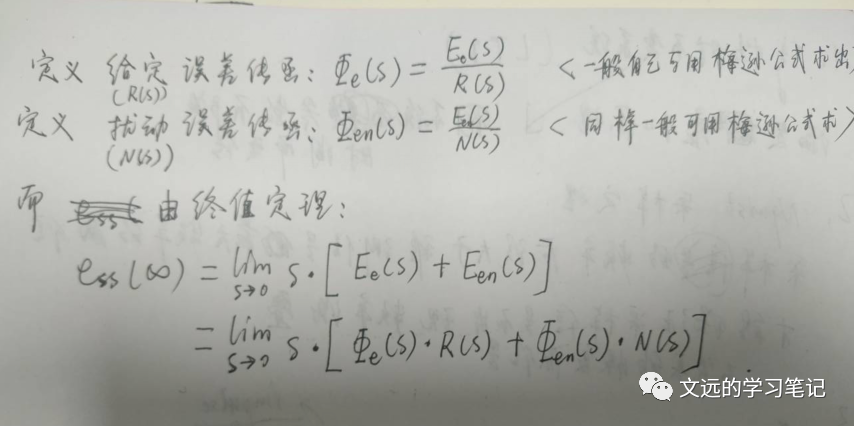 定义 给定 误差传函: Φe(s) = Ee(s)/R(s) <一般自己可用梅逊公式求出>
(R(s))
定义 扰动 误差传函: Φen(s) = En(s)/N(s) <同样一般可用梅逊公式求>
(N(s))
而 由终值定理:
ess(∞) = lim s→0 s·[Ee(s) + Een(s)]
= lim s→0 s·[Φe(s)·R(s) + Φen(s)·N(s)].
文远的学习笔记